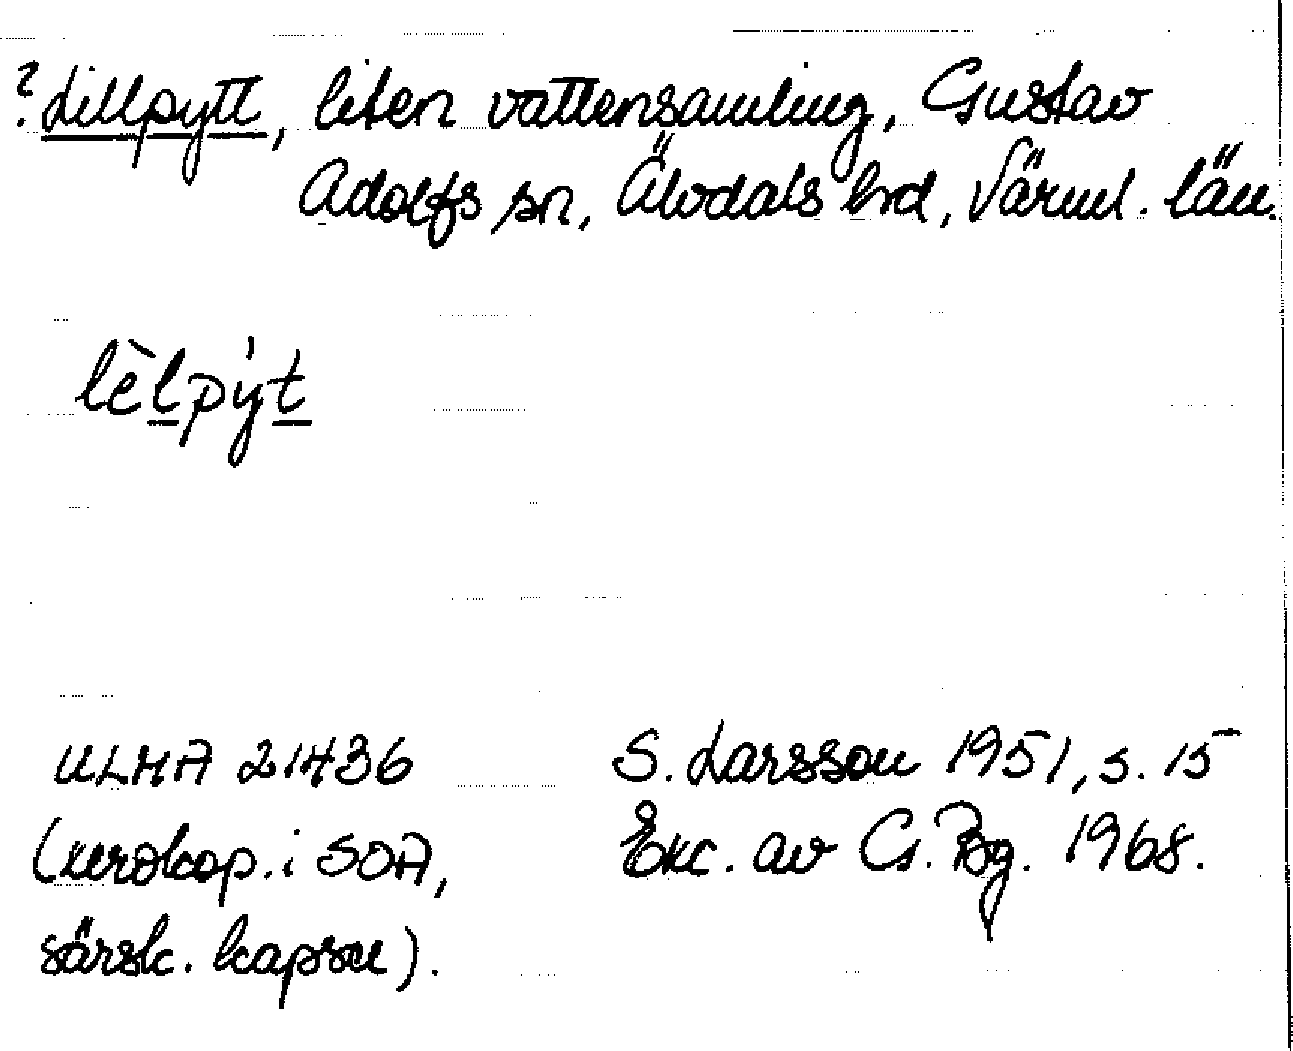 ? Lillpytt, liten vattensamling, Gustav
Adolfs sn, Älvdals hrd, Värml. län.
lèlpýt
ULMA 21436
(xerokop. i SOA,
särsk. kapsel).
S. Larsson 1951, s. 15
Exc. av G. Bg. 1968.